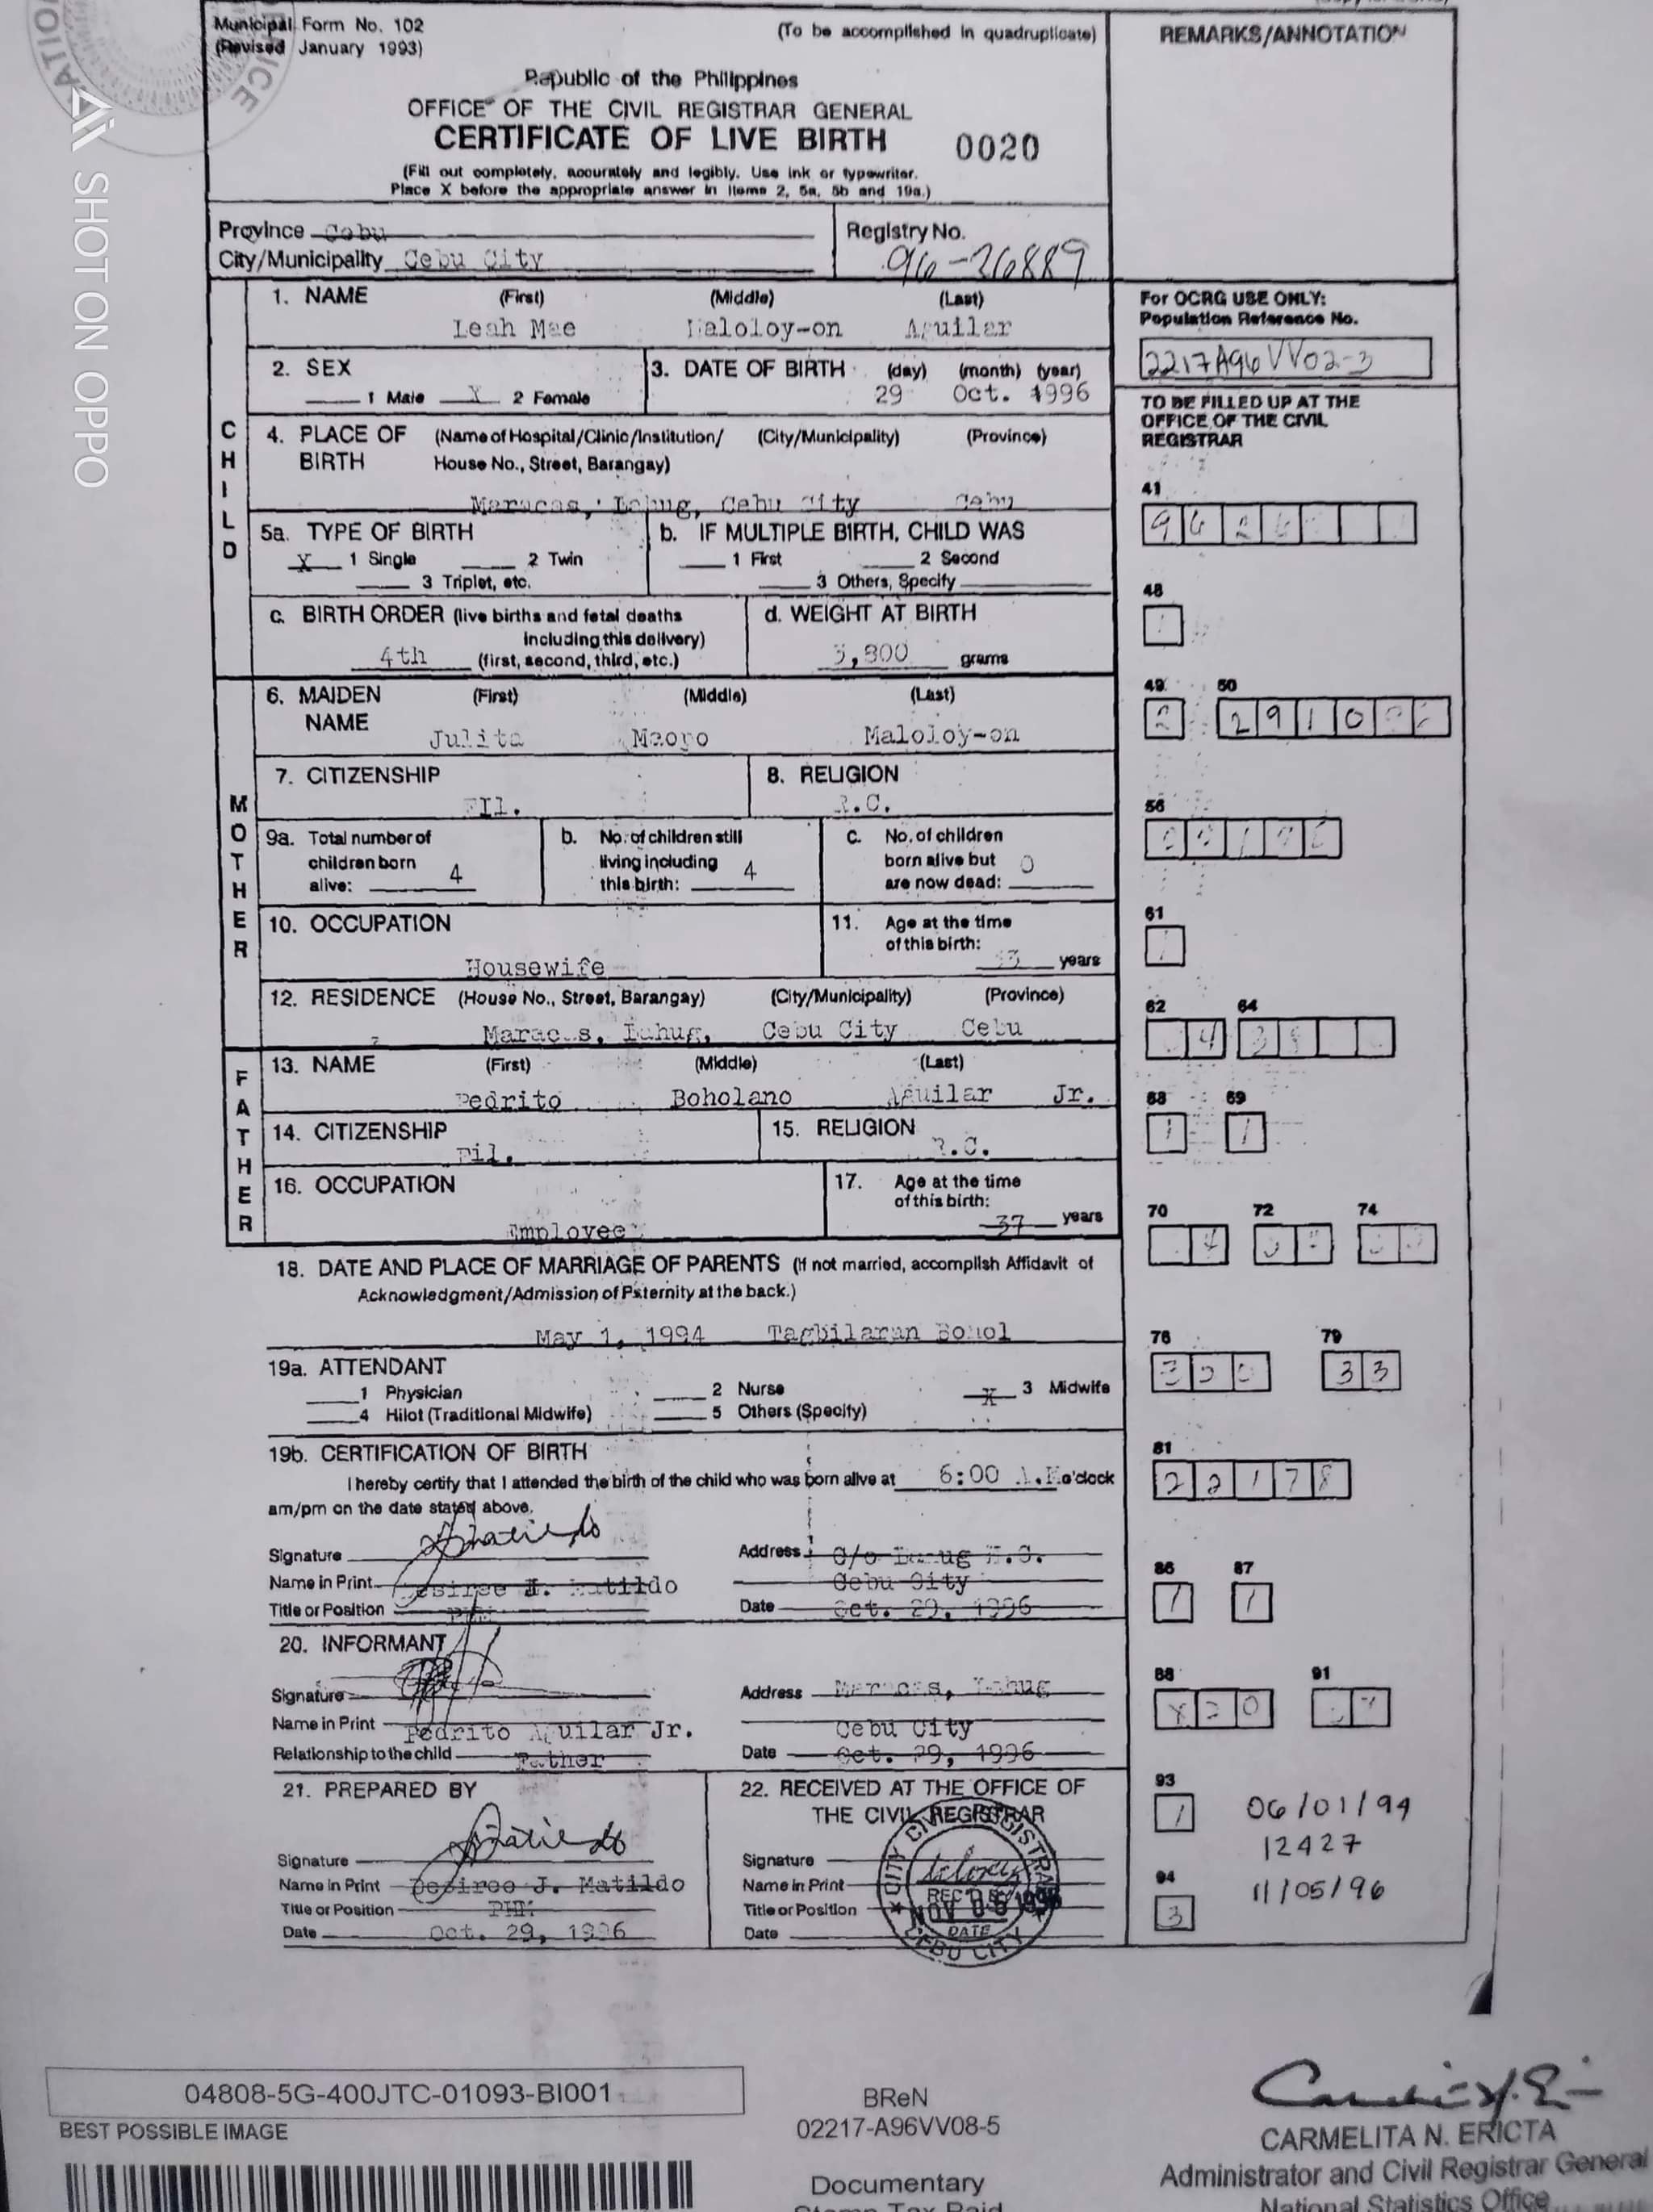 SHOT ON OPPO
Municipal Form No. 102
(Revised January 1993)
(To be accomplished in quadruplicate)
Republic of the Philippines
OFFICE OF THE CIVIL REGISTRAR GENERAL
CERTIFICATE OF LIVE BIRTH 0020
(Fill out completely, accurately and legibly. Use ink or typewriter.
Place X before the appropriate answer in Items 2, 5a, 5b and 19a.)
REMARKS/ANNOTATION
Province Cebu
City/Municipality Cebu City
Registry No.
96-26889
CHILD
1. NAME (First) (Middle) (Last)
Leah Mae Maloloy-on Aguilar
2. SEX
1 Male X 2 Female
3. DATE OF BIRTH (day) (month) (year)
29 Oct. 1996
4. PLACE OF BIRTH (Name of Hospital/Clinic/Institution/ (City/Municipality) (Province)
House No., Street, Barangay)
Maracas, Lahug, Cebu City Cebu
5a. TYPE OF BIRTH
X 1 Single 2 Twin
3 Triplet, etc.
b. IF MULTIPLE BIRTH, CHILD WAS
1 First 2 Second
3 Others, Specify
c. BIRTH ORDER (live births and fetal deaths
including this delivery)
4th (first, second, third, etc.)
d. WEIGHT AT BIRTH
grams
MOTHER
6. MAIDEN NAME (First) (Middle) (Last)
Julita Maoyo Maloloy-on
7. CITIZENSHIP
Fil.
8. RELIGION
R.C.
9a. Total number of
children born
alive: 4
b. No. of children still
living including
this birth: 4
c. No. of children
born alive but
are now dead: 0
10. OCCUPATION
Housewife
11. Age at the time
of this birth:
33 years
12. RESIDENCE (House No., Street, Barangay) (City/Municipality) (Province)
Maracas, Lahug, Cebu City Cebu
FATHER
13. NAME (First) (Middle) (Last)
Pedrito Boholano Aguilar Jr.
14. CITIZENSHIP
Fil.
15. RELIGION
R.C.
16. OCCUPATION
Employee
17. Age at the time
of this birth:
37 years
18. DATE AND PLACE OF MARRIAGE OF PARENTS (If not married, accomplish Affidavit of
Acknowledgment/Admission of Paternity at the back.)
May 1, 1994 Tagbilaran Bohol
19a. ATTENDANT
1 Physician 2 Nurse X 3 Midwife
4 Hilot (Traditional Midwife) 5 Others (Specify)
19b. CERTIFICATION OF BIRTH
I hereby certify that I attended the birth of the child who was born alive at 6:00 A.M. o'clock
am/pm on the date stated above.
Signature
Name in Print Desiree J. Matildo
Title or Position PHM
Address C/o Lahug H.C.
Cebu City
Date Oct. 29, 1996
20. INFORMANT
Signature
Name in Print Pedrito Aguilar Jr.
Relationship to the child Father
Address Maracas, Lahug
Cebu City
Date Oct. 29, 1996
21. PREPARED BY
Signature
Name in Print Desiree J. Matildo
Title or Position PHM
Date Oct. 29, 1996
22. RECEIVED AT THE OFFICE OF
THE CIVIL REGISTRAR
Signature
Name in Print
Title or Position
Date
CITY CIVIL REGISTRAR
REC'D BY
NOV 05 1996
DATE
CEBU CITY
For OCRG USE ONLY:
Population Reference No.
2217A96VV02-3
TO BE FILLED UP AT THE
OFFICE OF THE CIVIL
REGISTRAR
41
48
49 50
2 2910
56
61
62 64
4
68 69
1 1
70 72 74
4
76 79
33
81
22178
86 87
1 1
88 91
93
1 06/01/94
12427
94
3 11/05/96
04808-5G-400JTC-01093-BI001
BEST POSSIBLE IMAGE
BReN
02217-A96VV08-5
Documentary
Stamp Tax Paid
CARMELITA N. ERICTA
Administrator and Civil Registrar General
National Statistics Office